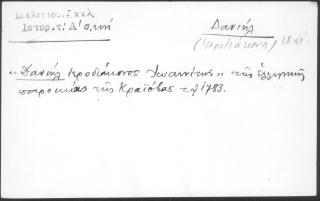 Μελετίου. Ἐκκλ.
Ἱστορ. τ. Δ΄ σ.
Δανιήλ
(Ἱεροδιάκονος) 18 αἰ.
«Δανιήλ Ἱεροδιάκονος Ἰωαννίτης» τῆς ἑλληνικῆς
παροικίας τῆς Κραϊόβας τῷ 1783.